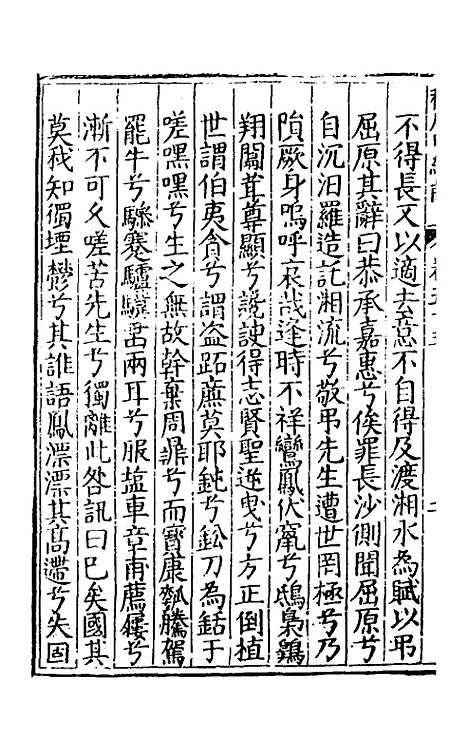 不得長又以適去意不自得及渡湘水為賦以弔
屈原其辭曰恭承嘉惠兮俟罪長沙側聞屈原兮
自沉汨羅造託湘流兮敬弔先生遭世罔極兮乃
隕厥身嗚呼哀哉逢時不祥鸞鳳伏竄兮鴟梟鶚
翔闒茸尊顯兮讒諛得志賢聖逆曳兮方正倒植
世謂伯夷貪兮謂盗跖廉莫耶鈍兮鈆刀為銛于
嗟嘿嘿兮生之無故幹棄周鼎兮而寶康瓠騰駕
罷牛兮驂蹇驢驥垂兩耳兮服塩車章甫薦屨兮
漸不可久嗟苦先生兮獨離此咎訊曰已矣國其
莫我知獨堙鬱兮其誰語鳳漂漂其髙遰兮夫固